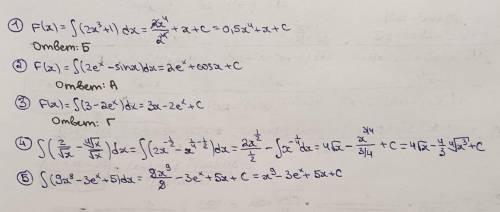 ① F(x) = ∫(2x³+1)dx = 2x⁴/4 + x + C = 0,5x⁴ + x + C
Ответ: Б
② F(x) = ∫(2eˣ - sinx)dx = 2eˣ + cosx + C
Ответ: А
③ F(x) = ∫(3 - 2eˣ)dx = 3x - 2eˣ + C
Ответ: Г
④ ∫(2/√x - ⁴√x/√x)dx = ∫(2x^(-1/2) - x^(1/4 - 1/2))dx = 2x^(1/2)/(1/2) - ∫x^(-1/4)dx = 4√x - x^(3/4)/(3/4) + C = 4√x - 4/3 ⁴√x³ + C
⑤ ∫(9x⁸ - 3eˣ + 5)dx = 9x⁹/9 - 3eˣ + 5x + C = x⁹ - 3eˣ + 5x + C